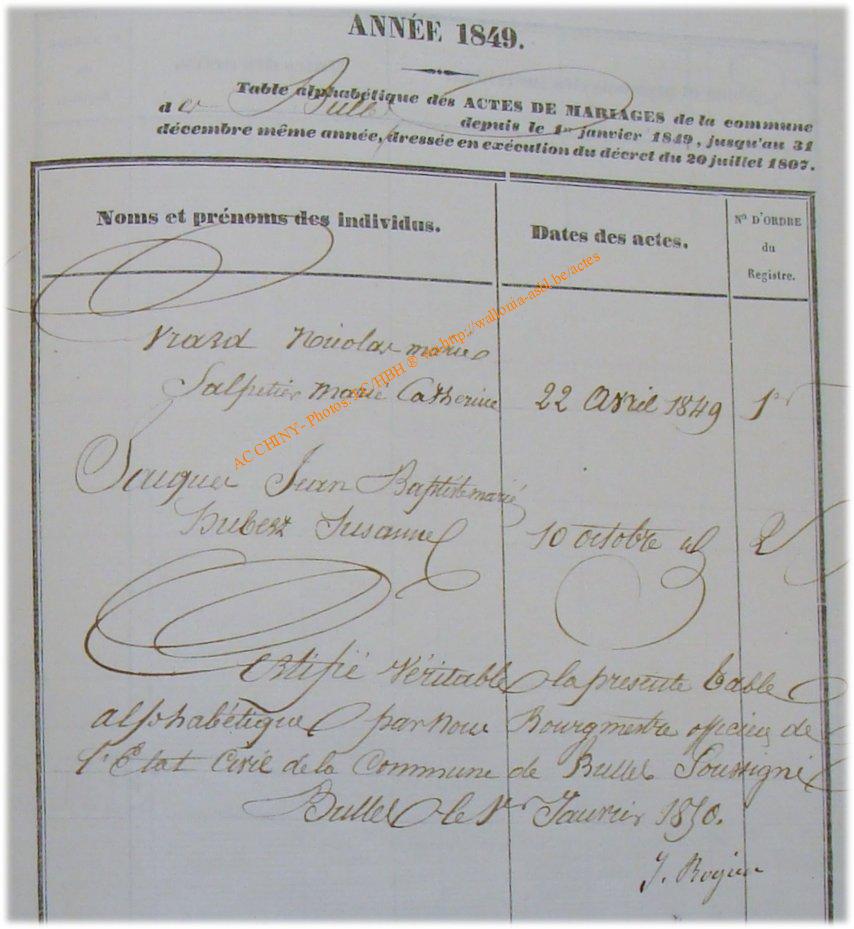 ANNÉE 1849.
Table alphabétique des ACTES DE MARIAGES de la commune
d e Bulle depuis le 1er janvier 1849, jusqu'au 31
décembre même année, dressée en exécution du décret du 20 juillet 1807.
Noms et prénoms des individus. Dates des actes. No D'ORDRE
du
Registre.
Nicolas marie
Salpetier Marie Catherine 22 avril 1849 1er
Jean Baptiste marié
Hubert Susanne 10 octobre id 2
Certifié Véritable la présente table
alphabétique par nous Bourgmestre officier de
l'Etat Civil de la Commune de Bulles Soussigné
Bulles le 1er Janvier 1850.
AC CHINY- Photos: LC/HBH ® sa-http://wallonia-asbl.be/actes